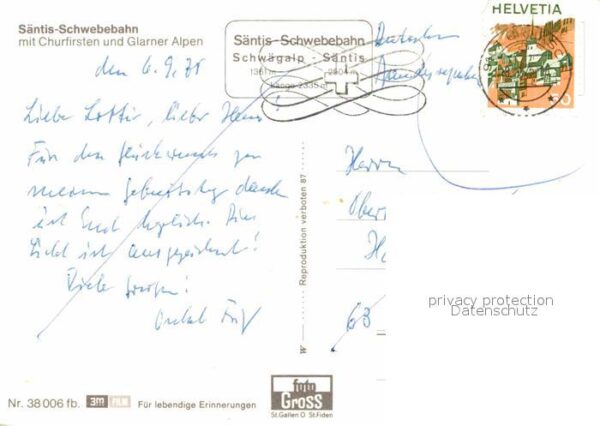 Säntis-Schwebebahn
mit Churfirsten und Glarner Alpen
Säntis-Schwebebahn
Schwägalp - Säntis
1361 m 2504 m
Länge 2335 m
HELVETIA
den 6.9.78
Liebe Lottie, lieber Hans!
Für den Glückwunsch zu
meinem Geburtstag danke
ich Euch herzlich. Das
Bild ist ausgezeichnet!
Viele Grüsse!
Onkel
Herrn
Ober
H
68
Reproduktion verboten 87
W
privacy protection
Datenschutz
Nr. 38 006 fb. 3M FILM Für lebendige Erinnerungen
foto
Gross
St.Gallen O St.Fiden